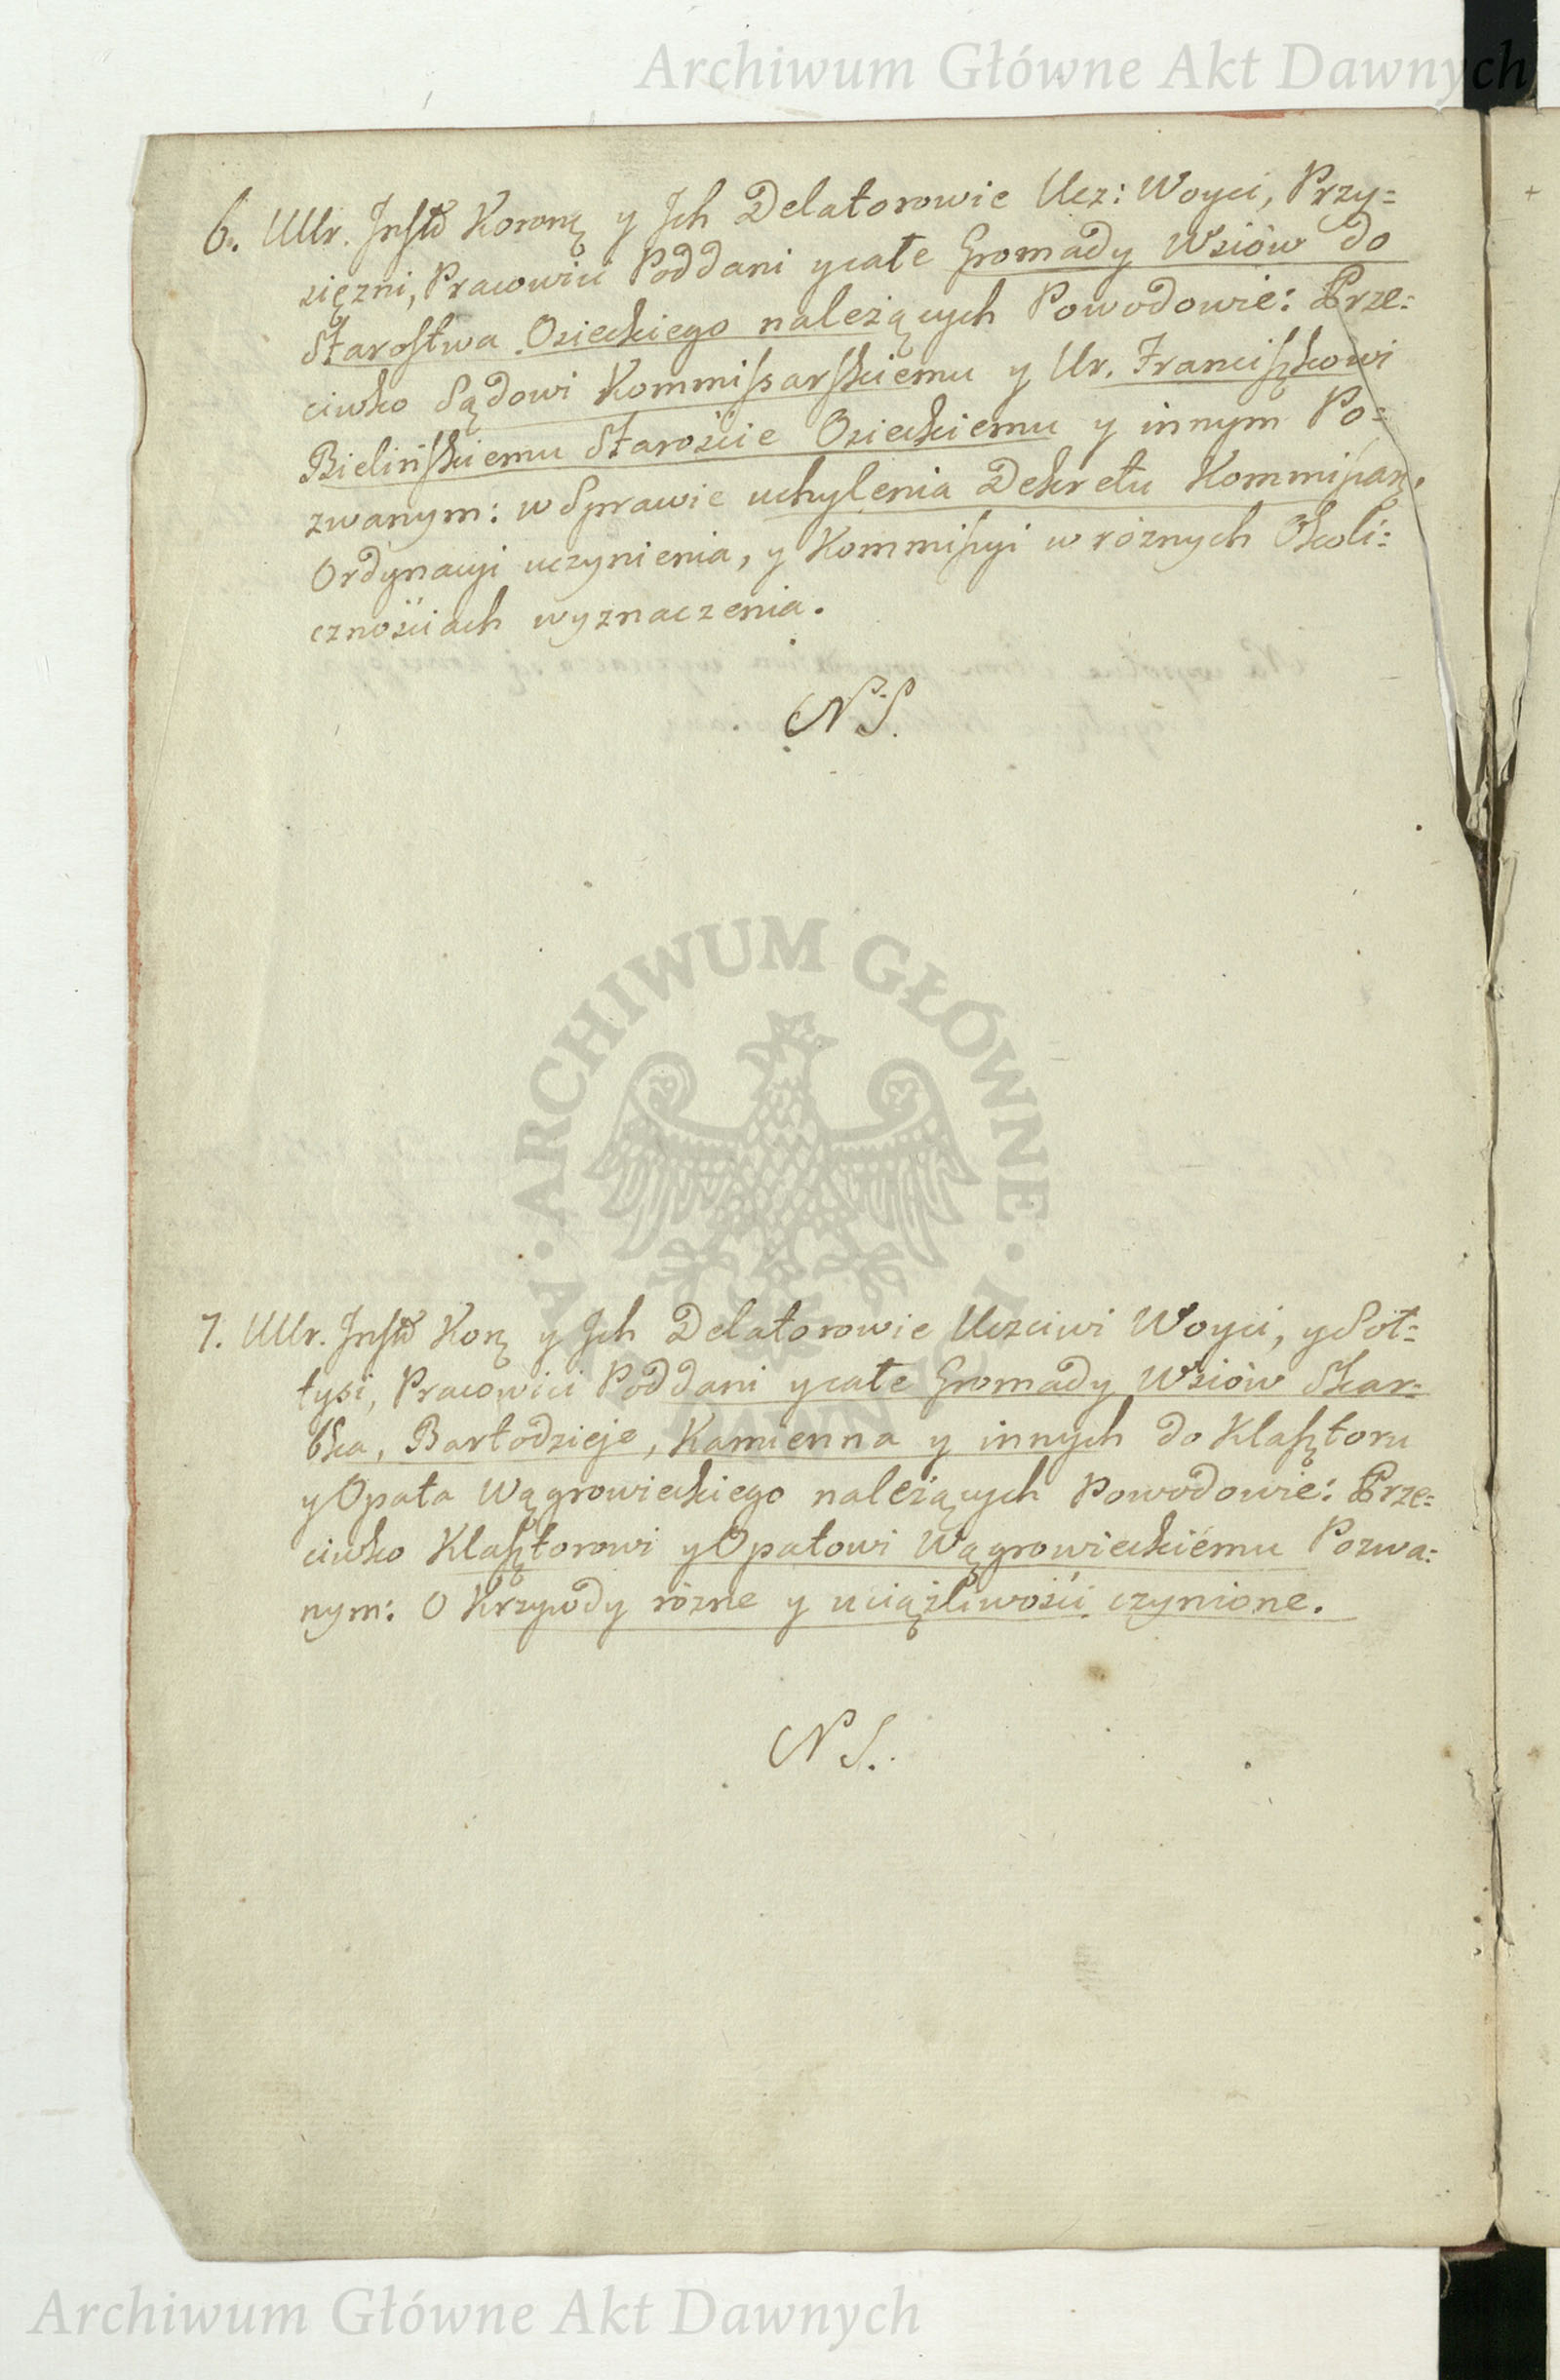 Archiwum Główne Akt Dawnych
6. UUr. Insttō Koronę y Ich Delatorowie Ucz: Woyci, Przy=
sięzni, Pracowici Poddani y całe Gromady Wsiów do
Starostwa Osieckiego należących Powodowie: Prze=
ciwko Sądowi Kommissarskiemu y Ur. Franciszkowi
Bielińskiemu Staroście Osieckiemu y innym Po=
zwanym: w Sprawie uchylenia Dekretu Kommissar.
Ordynacyi uczynienia, y Kommissyi w róznych Okoli=
cznościach wyznaczenia.
NS.
7. UUr. Insttō Korę y Ich Delatorowie Uczciwi Woyci, y Soł=
tysi, Pracowici Poddani y całe Gromady Wsiów Skar=
bka, Bartodzieje, Kamienna y innych do Klasztoru
y Opata Wągrowieckiego należących Powodowie: Prze=
ciwko Klasztorowi y Opatowi Wągrowieckiemu Pozwa=
nym: O Krzywdy rózne y uciążliwości czynione.
NS.
ARCHIWUM GŁÓWNE AKT DAWNYCH
Archiwum Główne Akt Dawnych